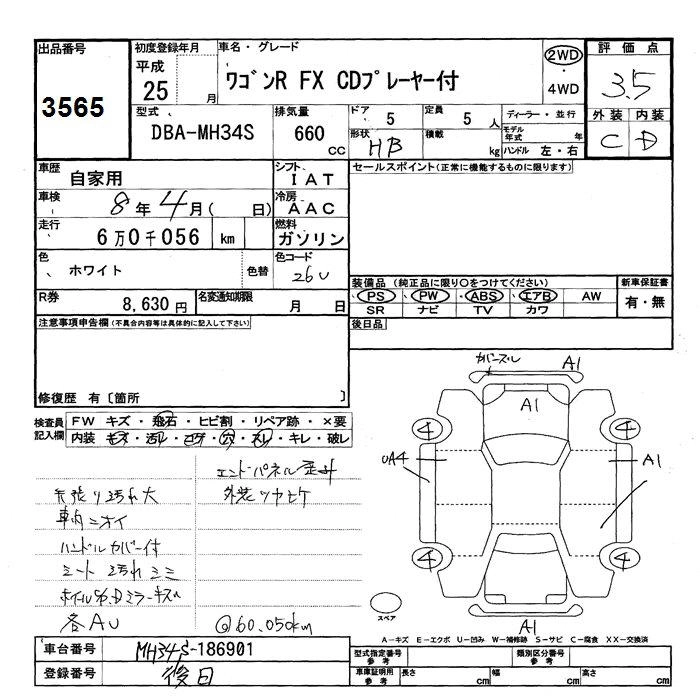 出品番号
3565
初度登録年月
平成
25 月
車名・グレード
ワゴンR FX CDプレーヤー付
2WD
・
4WD
評価点
3.5
外装 内装
C D
型式
DBA-MH34S
排気量
660
cc
ドア
5
定員
5 人
形状
HB
積載
kg
ディーラー・並行
モデル年式 年
ハンドル 左・右
車歴
自家用
シフト
IAT
車検
8年4月( 日)
冷房
AAC
走行
6万0千056 km
燃料
ガソリン
色
ホワイト
色替
色コード
26U
R券
8,630円
名変通知期限
月 日
セールスポイント(正常に機能するものに限ります)
装備品(純正品に限り○をつけてください)
PS PW ABS エアB AW
SR ナビ TV カワ
新車保証書
有・無
後日品
注意事項申告欄(不具合内容等は具体的に記入して下さい)
修復歴 有〔箇所 〕
検査員
記入欄
FW キズ・飛石・ヒビ割・リペア跡・×要
内装・キズ・汚れ・コゲ・穴・スレ・キレ・破レ
エンドパネル
天張り汚れ大
外装ツヤヒケ
車内ニオイ
ハンドルカバー付
シート汚れシミ
ホイルS,Dミラーキズ
各AU
@60.050km
カバーズレ
A1
A1
4
4
UA4
A1
4
4
スペア
A1
A-キズ E-エクボ U-凹み W-補修跡 S-サビ C-腐食 XX-交換済
車台番号
MH34S-186901
登録番号
後日
型式指定番号
参考
類別区分番号
参考
車庫証明用
参考
長さ cm
幅 cm
高さ cm